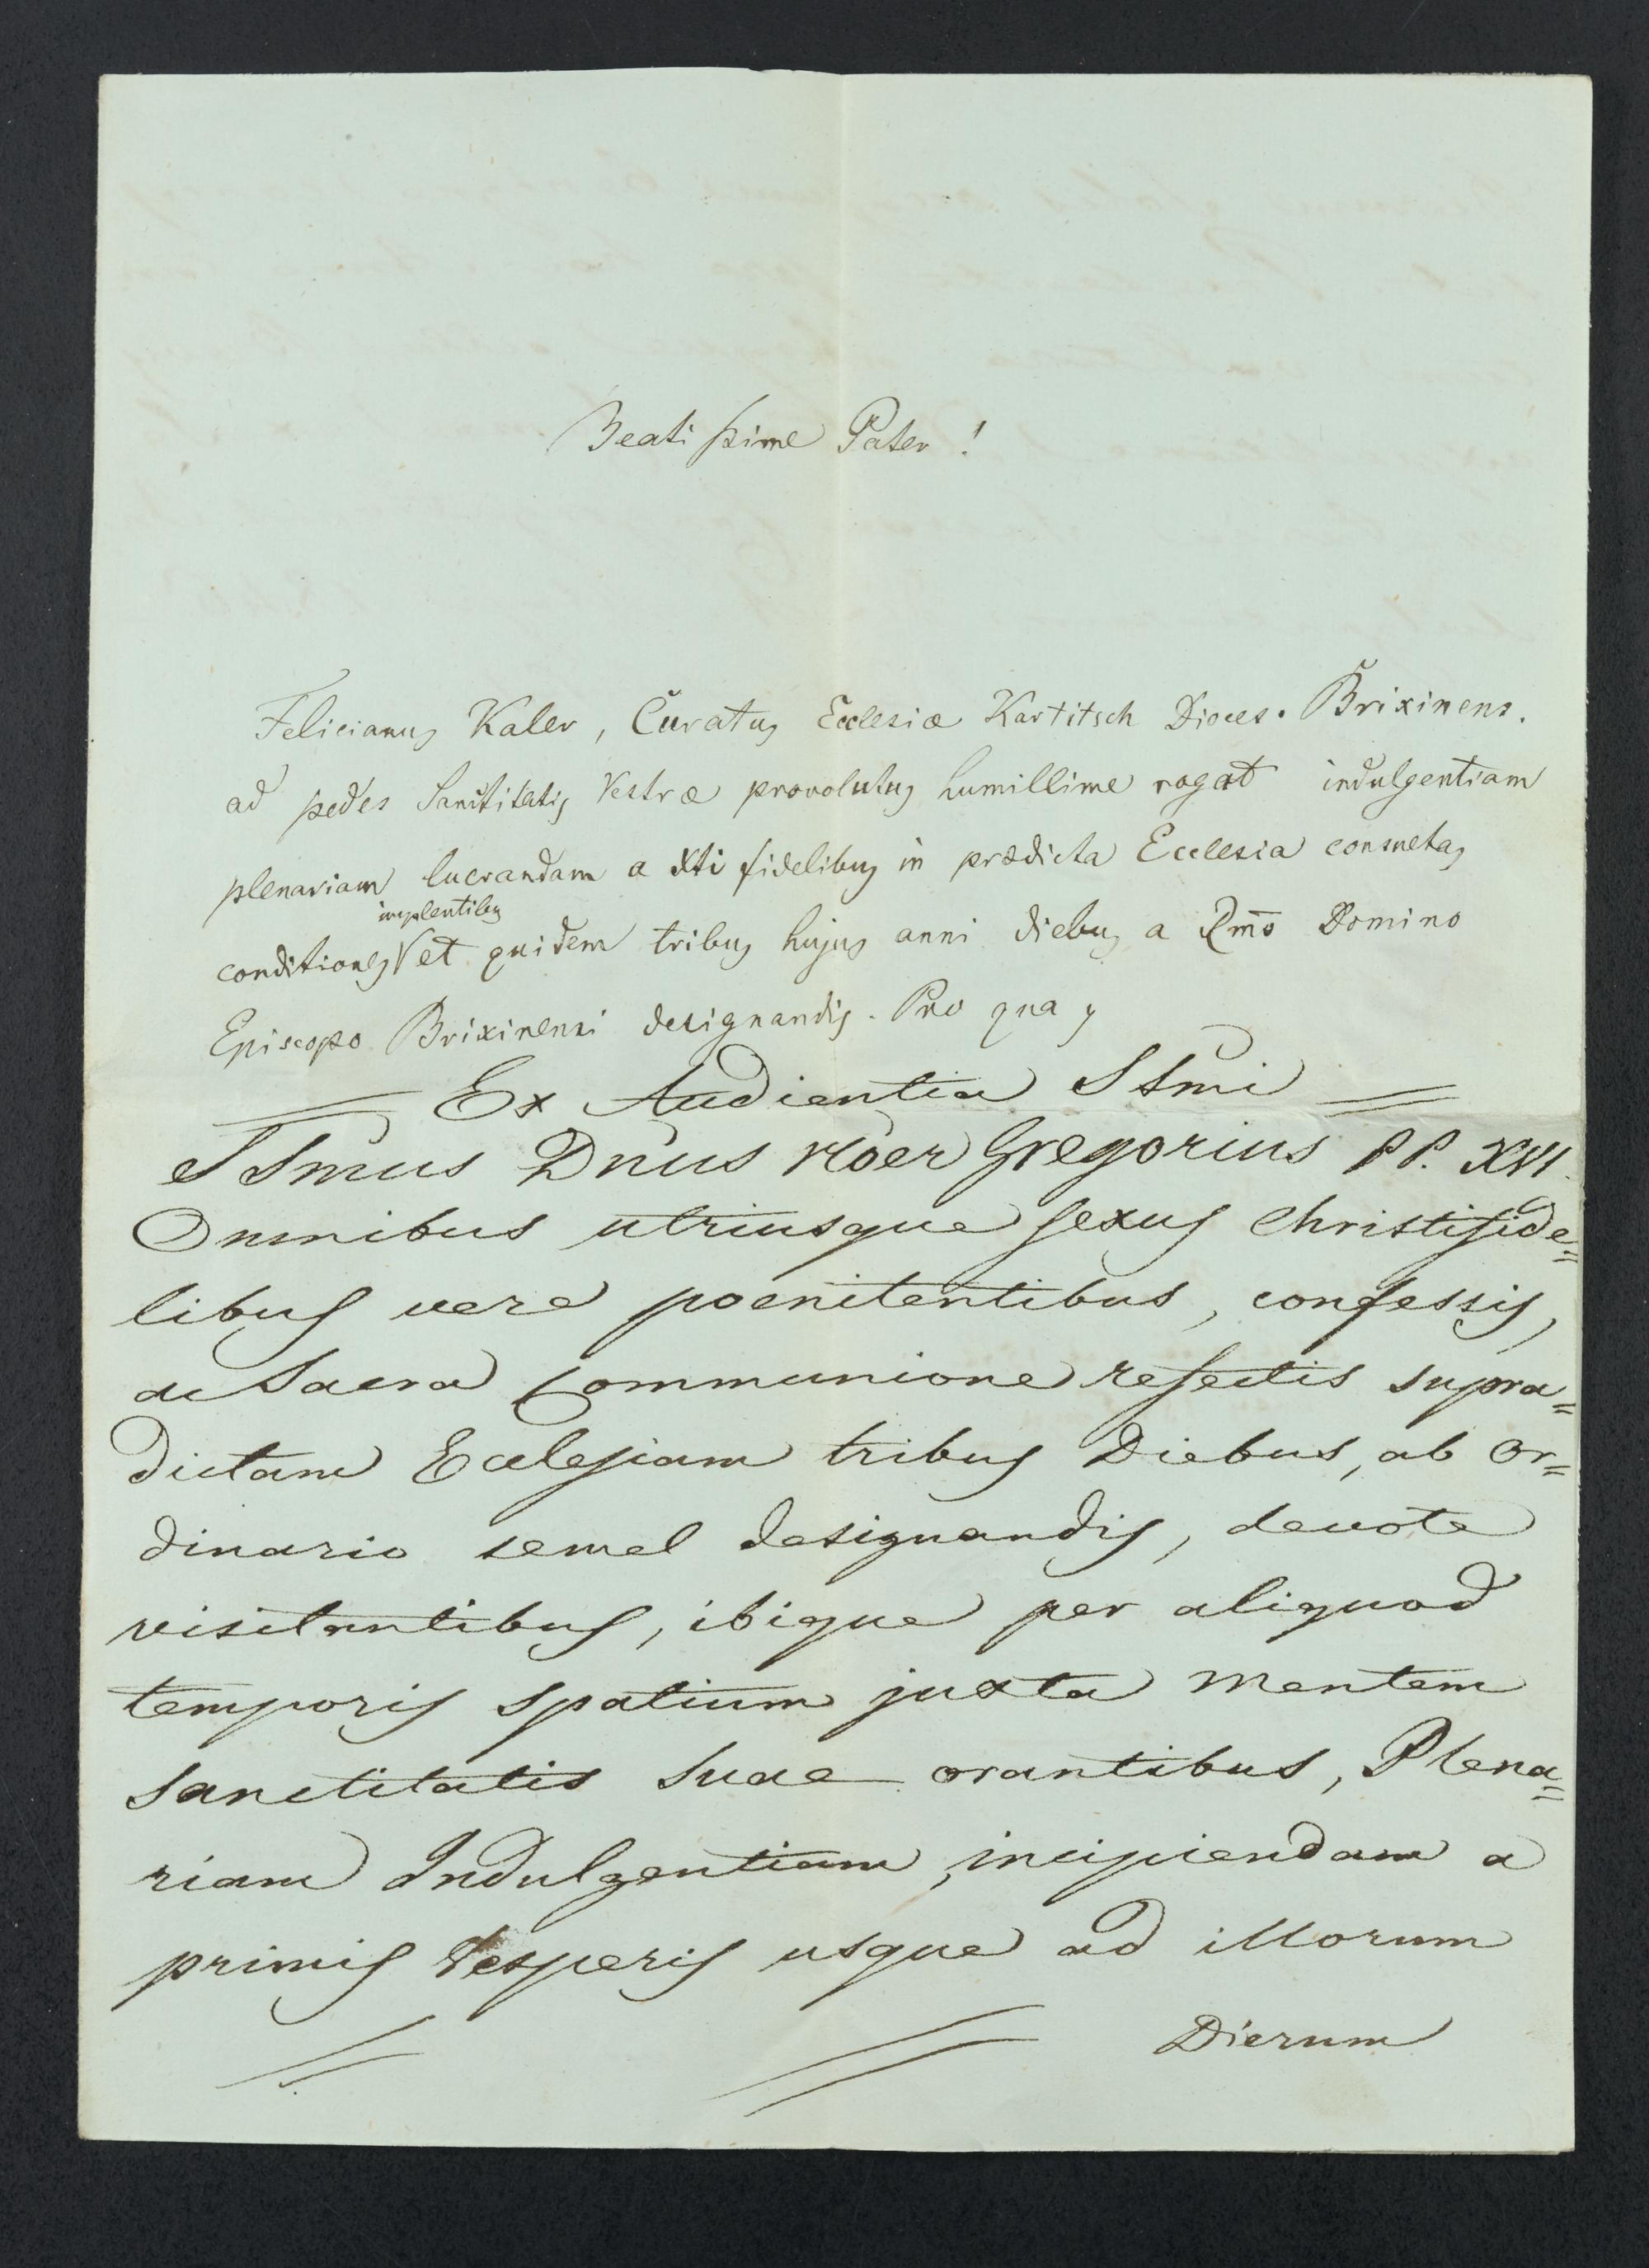 Beatissime Pater!
Felicianus Kaler, Curatus Ecclesiæ Kartitsch Dioces. Brixinens.
ad pedes Sanctitatis Vestræ provolutus humillime rogat indulgentiam
plenariam lucrandam a Xti fidelibus in prædicta Ecclesia consuetas
implentibus
conditiones et quidem tribus hujus anni diebus a Rm̄o Domino
Episcopo Brixinensi designandis. Pro qua
= Ex Audientia SSmi =
SSmus Dnus Noer Gregorius PP. XVI.
Omnibus utriusque sexus Christifide=
libus vere poenitentibus, confessis,
ac Sacra Communione refectis supra=
dictam Ecclesiam tribus Diebus, ab Or=
dinario semel designandis, devote
visitantibus, ibique per aliquod
temporis spatium juxta mentem
Sanctitatis Suae orantibus, Plena=
riam Indulgentiam, incipiendam a
primis Vesperis usque ad illorum
Dierum